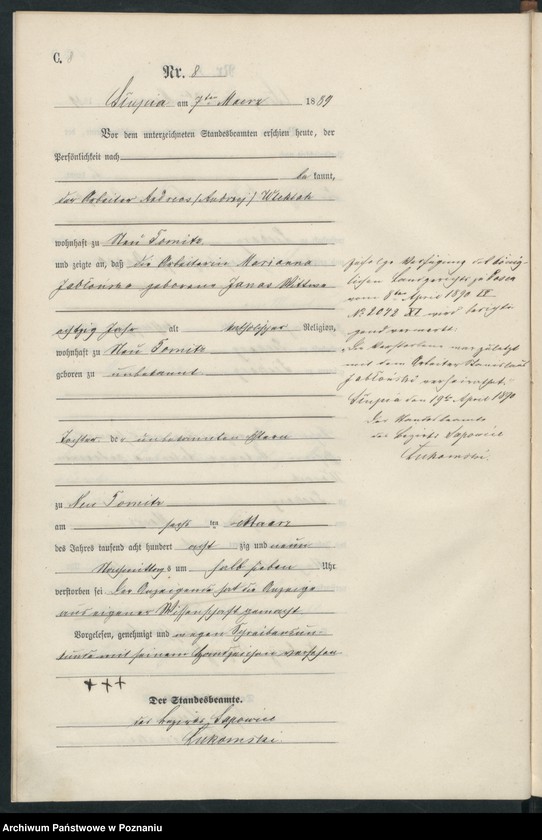 C.
Nr. 8
Słupia am 7ten Maerz 1889
Vor dem unterzeichneten Standesbeamten erschien heute, der
Persönlichkeit nach
be kannt,
der Arbeiter Andreas (Andrzej)
wohnhaft zu Neu Tomitz
und zeigte an, daß die Arbeiterin Marianna
Jabłońska geborene Janas Wittwe
achtzig Jahr alt katholischer Religion,
wohnhaft zu Neu Tomitz
geboren zu unbekannt
Tochter der unbekannten Eltern
zu Neu Tomitz
am sechs ten Maerz
des Jahres tausend acht hundert acht zig und neun
Nachmittags um halb sieben Uhr
verstorben sei Der Anzeigende hat die Anzeige
aus eigener Wissenschaft gemacht
Vorgelesen, genehmigt und wegen Schreibensun-
kunde mit seinem Handzeichen versehen
+++
Der Standesbeamte.
des Bezirks Sapowice
Łukomski
Zufolge Verfügung des König-
lichen Landgerichts zu Posen
vom 8ten April 1890 IV
No 2042 XI wird berichti-
gend vermerkt:
Die Verstorbene war zuletzt
mit dem Arbeiter Stanislaus
Jabłoński verheirathet.
Słupia den 19ten April 1890
Der Standesbeamte
des Bezirks Sapowice
Łukomski.
Archiwum Państwowe w Poznaniu